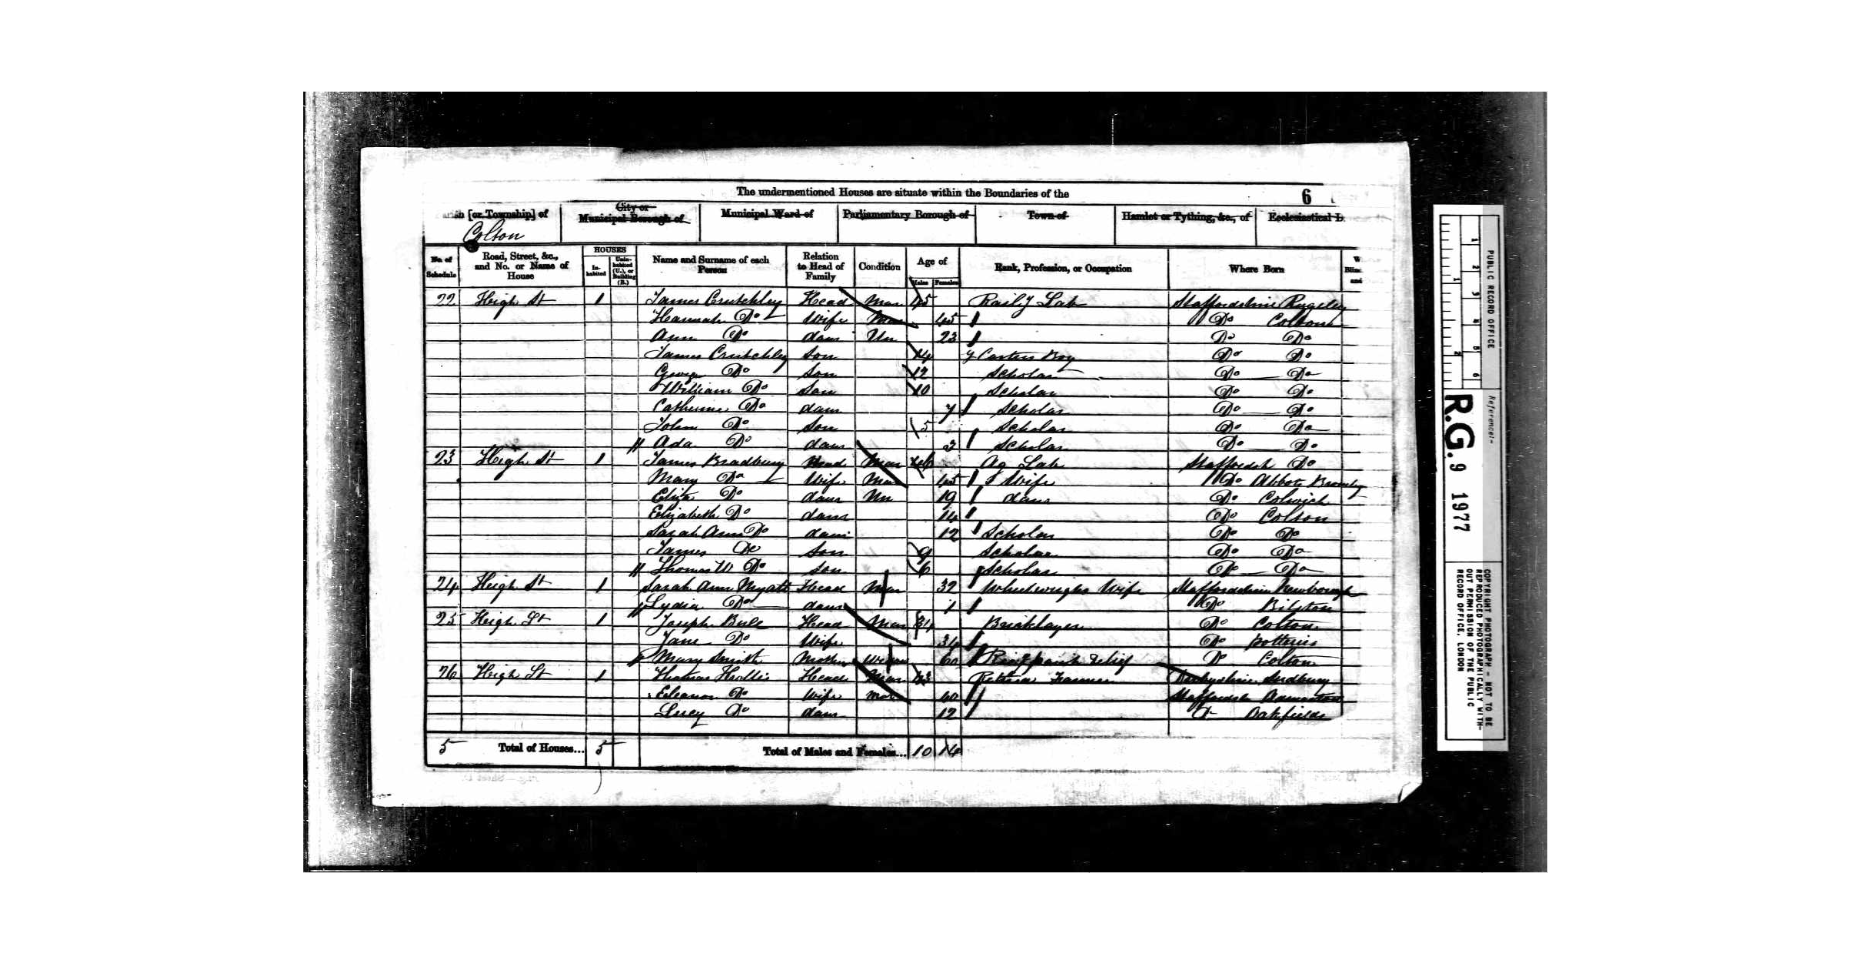 The undermentioned Houses are situate within the Boundaries of the
6
[or Township] of City or Municipal Borough of Municipal Ward of Parliamentary Borough of Town of Hamlet or Tything, &c., of Ecclesiastical D
Colton
No. of Schedule Road, Street, &c., and No. or Name of House HOUSES In-habited Unin-habited (U.), or Building (B.) Name and Surname of each Person Relation to Head of Family Condition Age of Males Females Rank, Profession, or Occupation Where Born
22 Heigh St 1 James Crutchley Head Mar 45 Rail.y Lab Staffordshire Rugeley
Hannah Do Wife Mar 45 Do Colton
Ann Do daur Un 23 Do Do
James Crutchley Son 14 Carters Boy Do Do
George Do Son 12 Scholar Do Do
William Do Son 10 Scholar Do Do
Catherine Do daur 7 Scholar Do Do
John Do Son 5 Scholar Do Do
Ada Do daur Scholar Do Do
23 Heigh St 1 James Bradbury Head Mar 46 Ag Lab Staffordsh Do
Mary Do Wife Mar 45 Wife Do Abbots Bromley
Eliza Do daur Un 19 daur Do Colwich
Elizabeth Do daur 14 Do Colton
Sarah Ann Do daur 12 Scholar Do Do
James Do Son 9 Scholar Do Do
Thomas W Do Son 6 Scholar Do Do
24 Heigh St 1 Sarah Ann Myatt Head Mar 32 Wheelwrights Wife Staffordshire Newborough
Lydia Do daur 1 Do Bilston
25 Heigh St 1 Joseph Bull Head Mar 34 Bricklayer Do Colton
Jane Do Wife 34 Do Potteries
Mary Smith Mother 60 relief D Colton
26 Heigh St 1 Thomas Hollis Head Mar Farmer Derbyshire Sudbury
Eleanor Do Wife Mar 60 Staffordsh
Lucy Do daur 12 D Oakfields
5 Total of Houses... 5 Total of Males and Females... 10 14
PUBLIC RECORD OFFICE
Reference:-
R.G. 9 1977
COPYRIGHT PHOTOGRAPH - NOT TO BE REPRODUCED PHOTOGRAPHICALLY WITHOUT PERMISSION OF THE PUBLIC RECORD OFFICE, LONDON